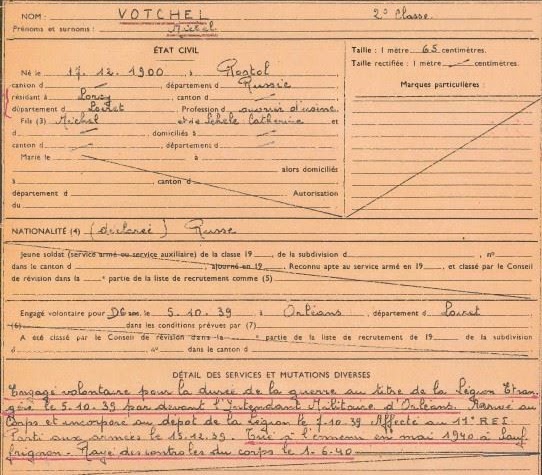 NOM : VOTCHEL 2e Classe
Prénoms et surnoms : Michel
ÉTAT CIVIL
Né le 17.12.1900 à Rostol
canton d département d Russie
résidant à Lorcy canton d
département d Loiret Profession d ouvrier d'usine
Fils (3) Michel et de Catherine et
d domiciliés à
canton d département d
Marié le à
alors domiciliés
à canton d
département d Autorisation
du
Taille : 1 mètre 65 centimètres.
Taille rectifiée : 1 mètre centimètres.
Marques particulières :
NATIONALITÉ (4) (déclarée) Russe
Jeune soldat (service armé ou service auxiliaire) de la classe 19 , de la subdivision d , n°
dans le canton d , ajourné en 19 . Reconnu apte au service armé en 19 , et classé par le Conseil
de révision dans la * partie de la liste de recrutement comme (5)
Engagé volontaire pour DG le 5.10.39 à Orléans , département d Loiret
(6) dans les conditions prévues par (7)
A été classé par le Conseil de révision dans la * partie de la liste de recrutement de 19 de la subdivision
d n° dans le canton d
DÉTAIL DES SERVICES ET MUTATIONS DIVERSES
Engagé volontaire pour la durée de la guerre au titre de la Légion Etran-
gère le 5.10.39 par devant l'Intendant Militaire d'Orléans. Arrivé au
Corps et incorporé au dépôt de la Légion le 7.10.39 Affecté au 11e REI
Parti aux armées le 15.12.39. Tué à l'ennemi en mai 1940 à
Rayé des contrôles du corps le 1.6.40